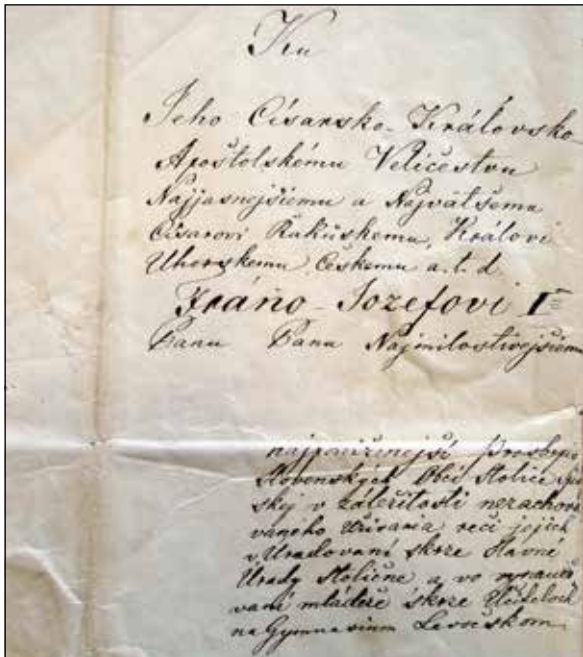 Ku
Jeho Císarsko-Královsko-
Apoštolskému Veličestvu
Najjasnejšiemu a Najvätšemu
Císarovi Rakúskemu, Královi
Uhorskemu Českemu a.t.d.
Fráňo-Jozefovi I
Panu Panu Najmilostivejšiemu
najponíženejší
Slovenských Obcí Stolice
skej v záležitosti nezachová
vaneho užívania reči jejich
v Úradovaní skrze Slavné
Úrady Stoličné a vo vynauče
vaní mládeže skrze
na Gymnasium Levočskom